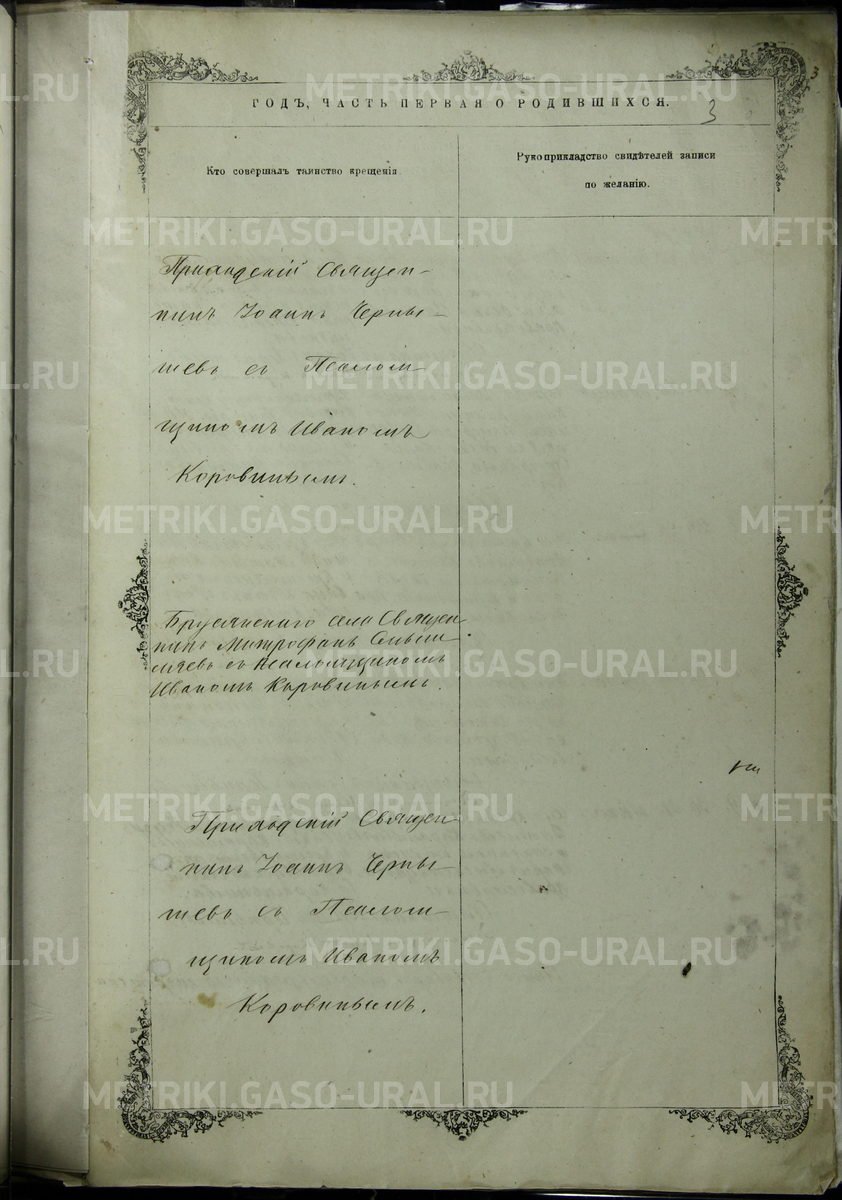 ГОДЪ, ЧАСТЬ ПЕРВАЯ О РОДИВШИХСЯ.
3
3
Кто совершалъ таинство крещенія.
Рукоприкладство свидѣтелей записи
по желанію.
Приходскій Священ-
никъ Іоаннъ Черны-
шевъ съ Псалом-
щикомъ Иваномъ
Коровинымъ.
Бруслянского села Священ-
никъ Митрофанъ
съ Псаломщикомъ
Иваномъ Коровинымъ.
Приходскій Священ-
никъ Іоаннъ Черны-
шевъ съ Псалом-
щикомъ Иваномъ
Коровинымъ.
METRIKI.GASO-URAL.RU